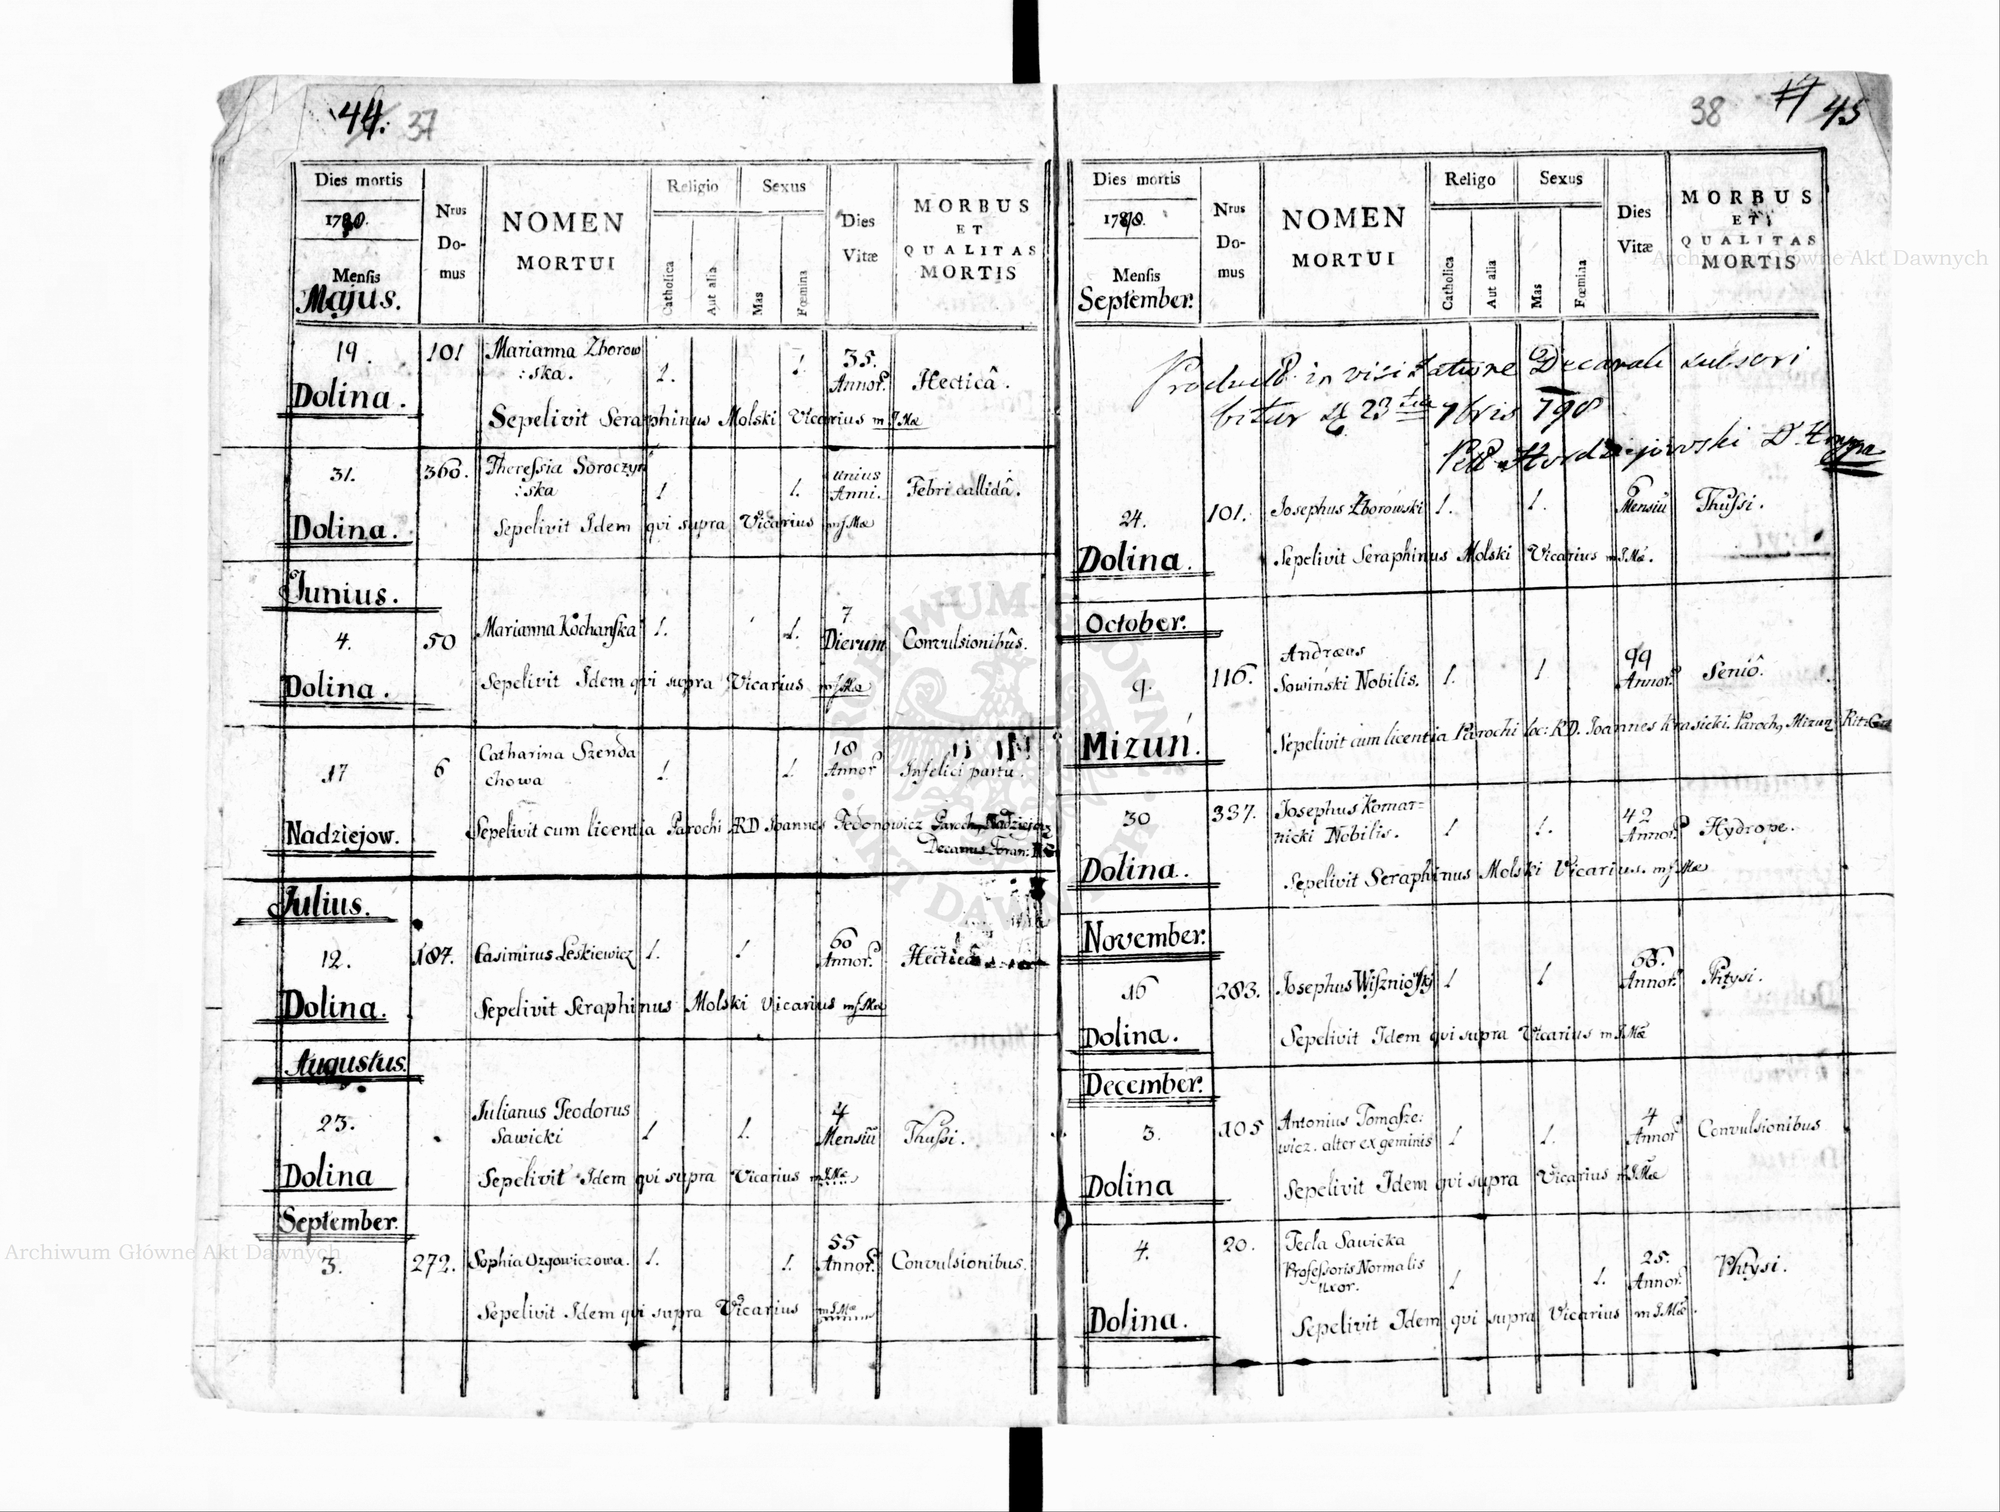 44. 37
Dies mortis
Mensis
Majus.
Nrus
Do-
mus
NOMEN
MORTUI
Religio
Catholica
Aut alia
Sexus
Mas
Fœmina
Dies
Vitæ
MORBUS
ET
QUALITAS
MORTIS
19. 101 Marianna Zborow
:ska. 1. 1. 35.
Annor. Hecticâ.
Dolina.
Sepelivit Seraphinus Molski Vicarius
31. 360. Theressia Soroczyn
:ska 1 1. unius
Anni. Febri callidâ.
Dolina.
Sepelivit Idem qvi supra Vicarius
Junius.
4. 50 Marianna Kochanska 1. 1. 7
Dierum Convulsionibûs.
Dolina.
Sepelivit Idem qvi supra Vicarius
17 6 Catharina Szenda
chowa 1. 1. 18
Annor Infelici partu.
Nadziejow.
Sepelivit cum licentia Parochi RD Joannes Fedonowicz Paroch, Nadziejow
Decanus Foran:
Julius.
12. 187. Casimirus Leskiewicz 1. 1 60
Annor.
Dolina.
Sepelivit Seraphinus Molski Vicarius
Augustus.
23. Julianus Teodorus
Sawicki 1 1. 4
Mensiũ Thussi.
Dolina
Sepelivit Idem qvi supra Vicarius
September.
3. 272. Sophia Ozgowiczowa. 1. 1. 55
Annor. Convulsionibus.
Sepelivit Idem qvi supra Vicarius
38 45
Dies mortis
Mensis
September.
Nrus
Do-
mus
NOMEN
MORTUI
Religo
Catholica
Aut alia
Sexus
Mas
Fœmina
Dies
Vitæ
MORBUS
ET
QUALITAS
MORTIS
in visitatione Decanali subscri
bitur 23 7bris
24. 101. Josephus Zborowski 1. 1. 6
Mensiũ Thussi.
Dolina.
Sepelivit Seraphinus Molski Vicarius
October.
9. 116. Andræas
Sowiński Nobilis. 1. 1 99
Annor. Seniô.
Mizuń.
Sepelivit cum licentia Parochi loc: RD. Joannes Krasicki. Paroch, Mizun
30 337. Josephus Komar-
nicki Nobilis. 1 1. 42
Annor. Hydrope.
Dolina.
Sepelivit Seraphinus Molski Vicarius.
November.
16 283. Josephus Wisznioski 1 1 66.
Annor. Phtysi.
Dolina.
Sepelivit Idem qvi supra Vicarius
December.
3. 105 Antonius Tomasze:
wicz. alter ex geminis 1 1. 4
Annor Convulsionibus
Dolina
Sepelivit Idem qvi supra Vicarius
4. 20. Tecla Sawicka
Professoris Normalis
uxor. 1 1. 25.
Annor. Phtysi.
Dolina.
Sepelivit Idem qvi supra Vicarius
Archiwum Główne Akt Dawnych
Archiwum Główne Akt Dawnych
ARCHIWUM GŁÓWNE AKT DAWNYCH